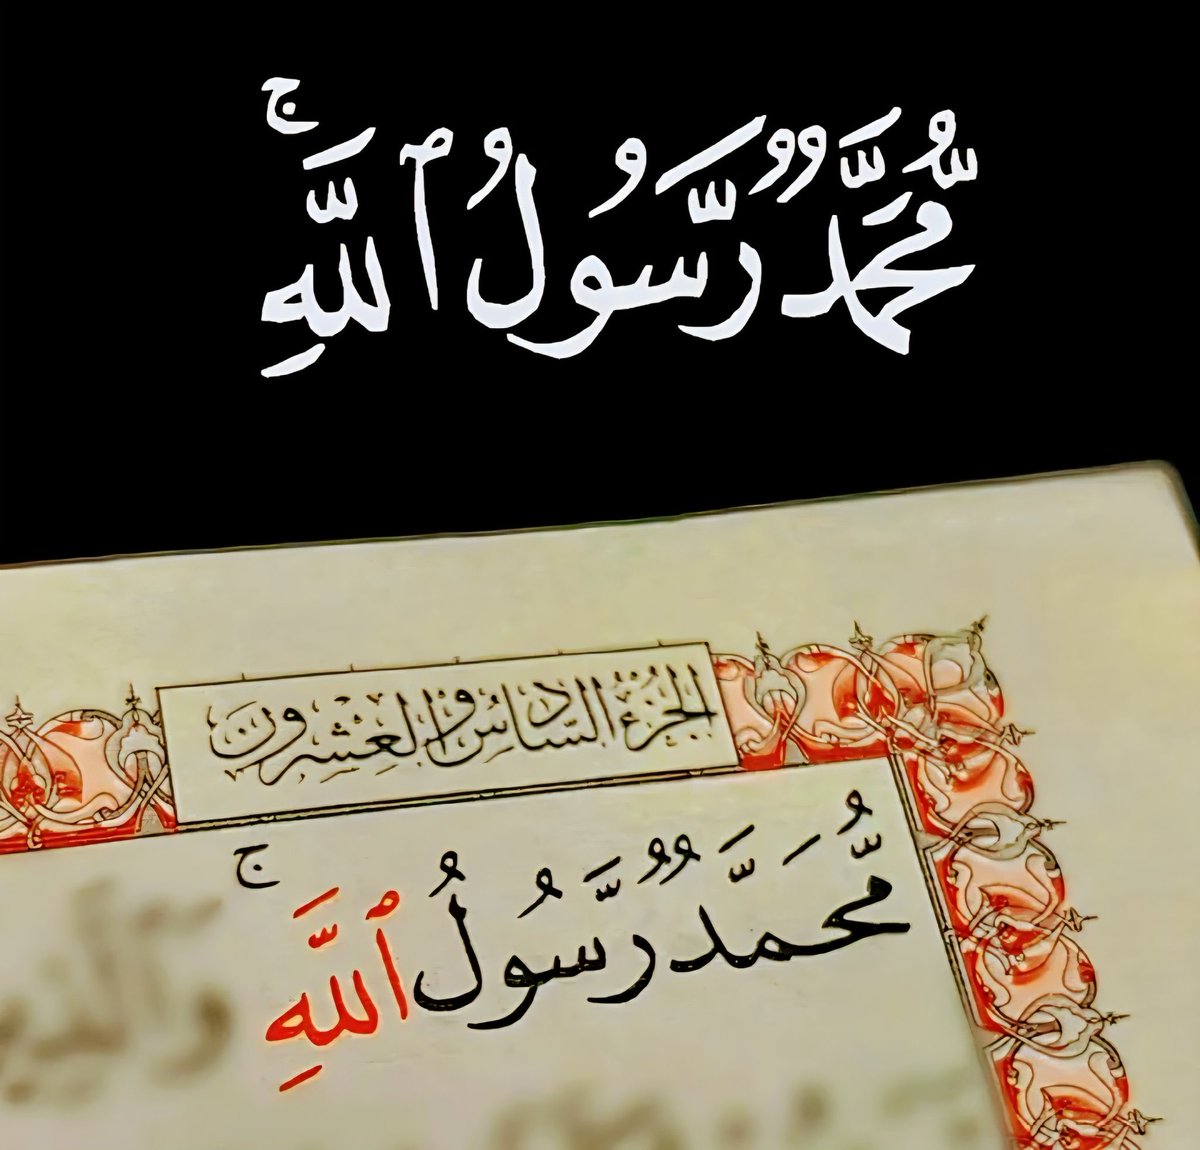 مُّحَمَّدٌ رَّسُولُ ٱللَّهِ ۚ
الجُزْءُ السَّادِسُ وَالعِشْرُونَ
مُّحَمَّدٌ رَّسُولُ ٱللَّهِ ۚ